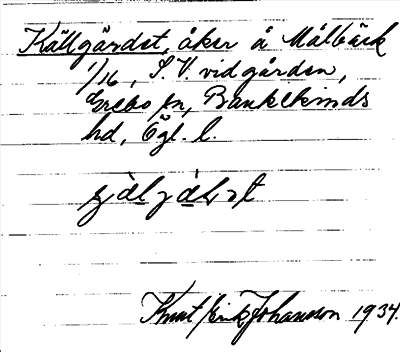 Källgärdet, åker å Målbäck
1/16, S. V. vid gården,
Grebo sn, Bankekinds
hd, Ögl. l.
Knut Erik Johansson 1934.